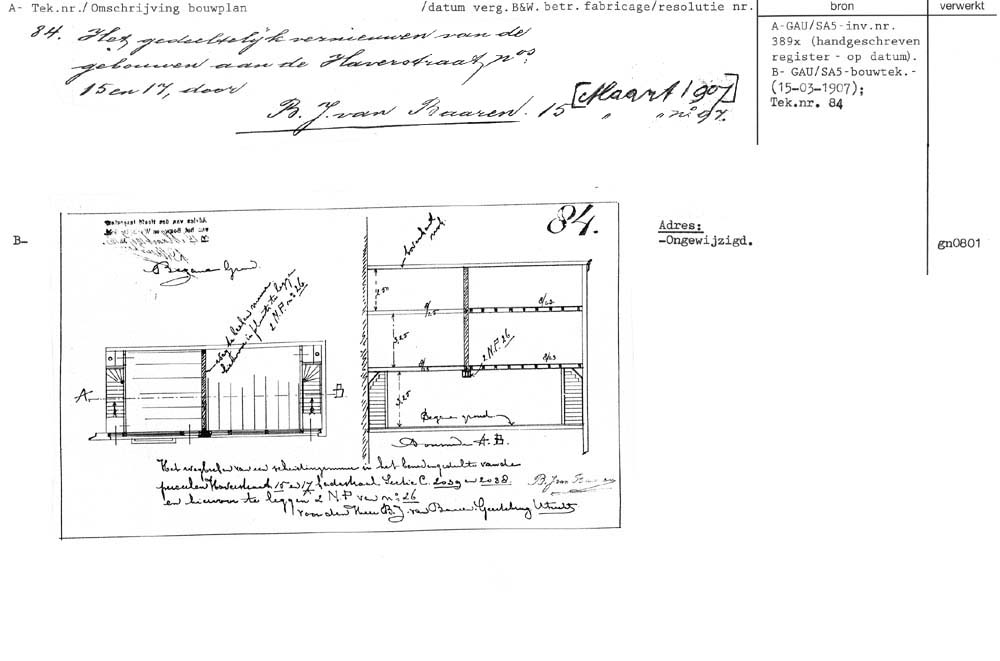 A- Tek.nr./Omschrijving bouwplan /datum verg.B&W. betr. fabricage/resolutie nr. bron verwerkt
84. Het gedeeltelijk vernieuwen van de
gebouwen aan de Haverstraat, nos.
15 en 17, door
B. J. van Baaren. 15 [Maart 1907]
" " no 97.
A-GAU/SA5-inv.nr.
389x (handgeschreven
register - op datum).
B- GAU/SA5-bouwtek.-
(15-03-1907);
Tek.nr. 84
B-
84.
Begane Grond.
2 N.P. no 26
A B
3.25
3.25
2 N.P. 26
Begane grond
Doorsnede A. B.
Adres:
-Ongewijzigd.
gn0801
Het wegbreken van een scheidingsmuur in het benedengedeelte van de
perceelen Haverstraat 15 en 17 Kadastraal Sectie C. 2039 en 2038.
en hiervoor te leggen 2 N.P. van no 26
voor den Heer B. J. van Baaren Utrecht